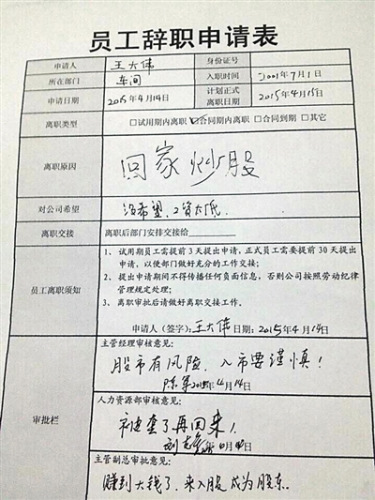 员工辞职申请表
申请人 王大伟 身份证号
所在部门 车间 入职时间 2005年7月1日
申请日期 2015年4月14日 计划正式离职日期 2015年4月15日
离职类型 □试用期内离职 ☑合同期内离职 □合同到期 □其它
离职原因 回家炒股
对公司希望 没希望,工资太低.
离职交接 离职后部门安排交接给
员工离职须知
1、试用期员工需提前3天提出申请,正式员工需要提前30天提出
申请,以便部门做好充分的工作交接;
2、提出申请期间不得传播任何负面信息,否则公司按照劳动纪律
管理规定处理;
3、离职审批后请做好离职交接工作。
申请人(签字):王大伟 日期:2015年4月14日
审批栏
主管经理审核意见:
股市有风险,入市要谨慎!
陈军 2015年4月14日
人力资源部审核意见:
被套了再回来!
主管副总审批意见:
赚到大钱了,来入股成为股东.